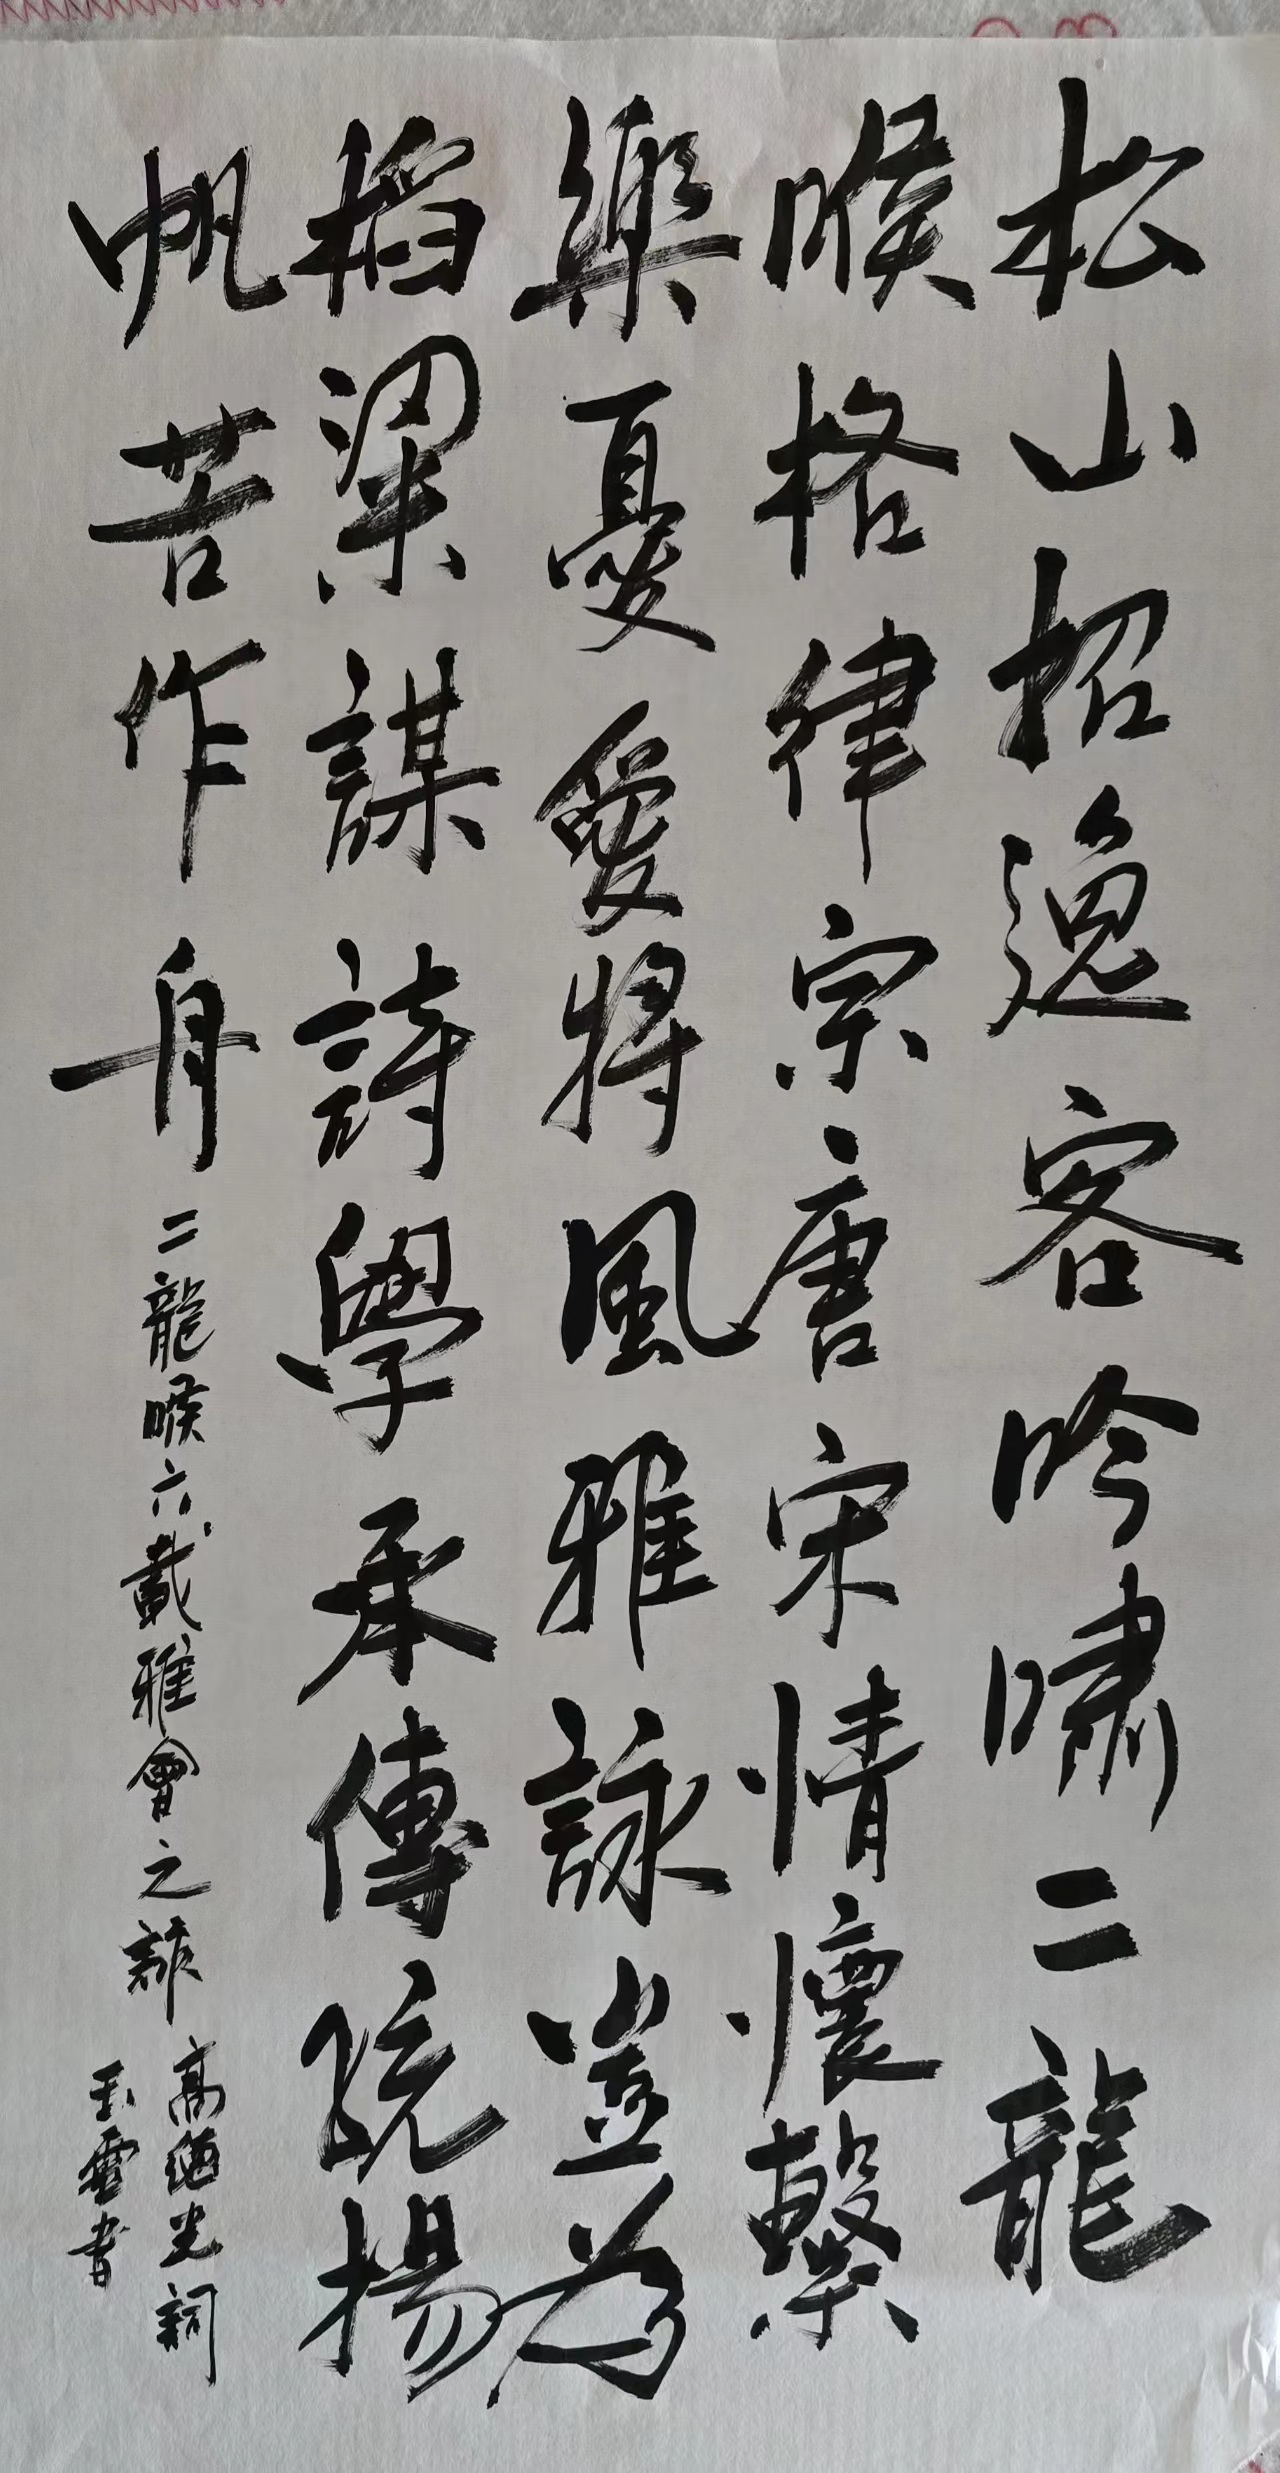 松山招逸客吟啸二龍
喉格律宗唐宋情懷繫
樂憂愛將風雅詠豈為
稻粱謀詩學承傳旒揚
帆苦作舟
二龍喉六載雅會之
高 光詞
玉雲書